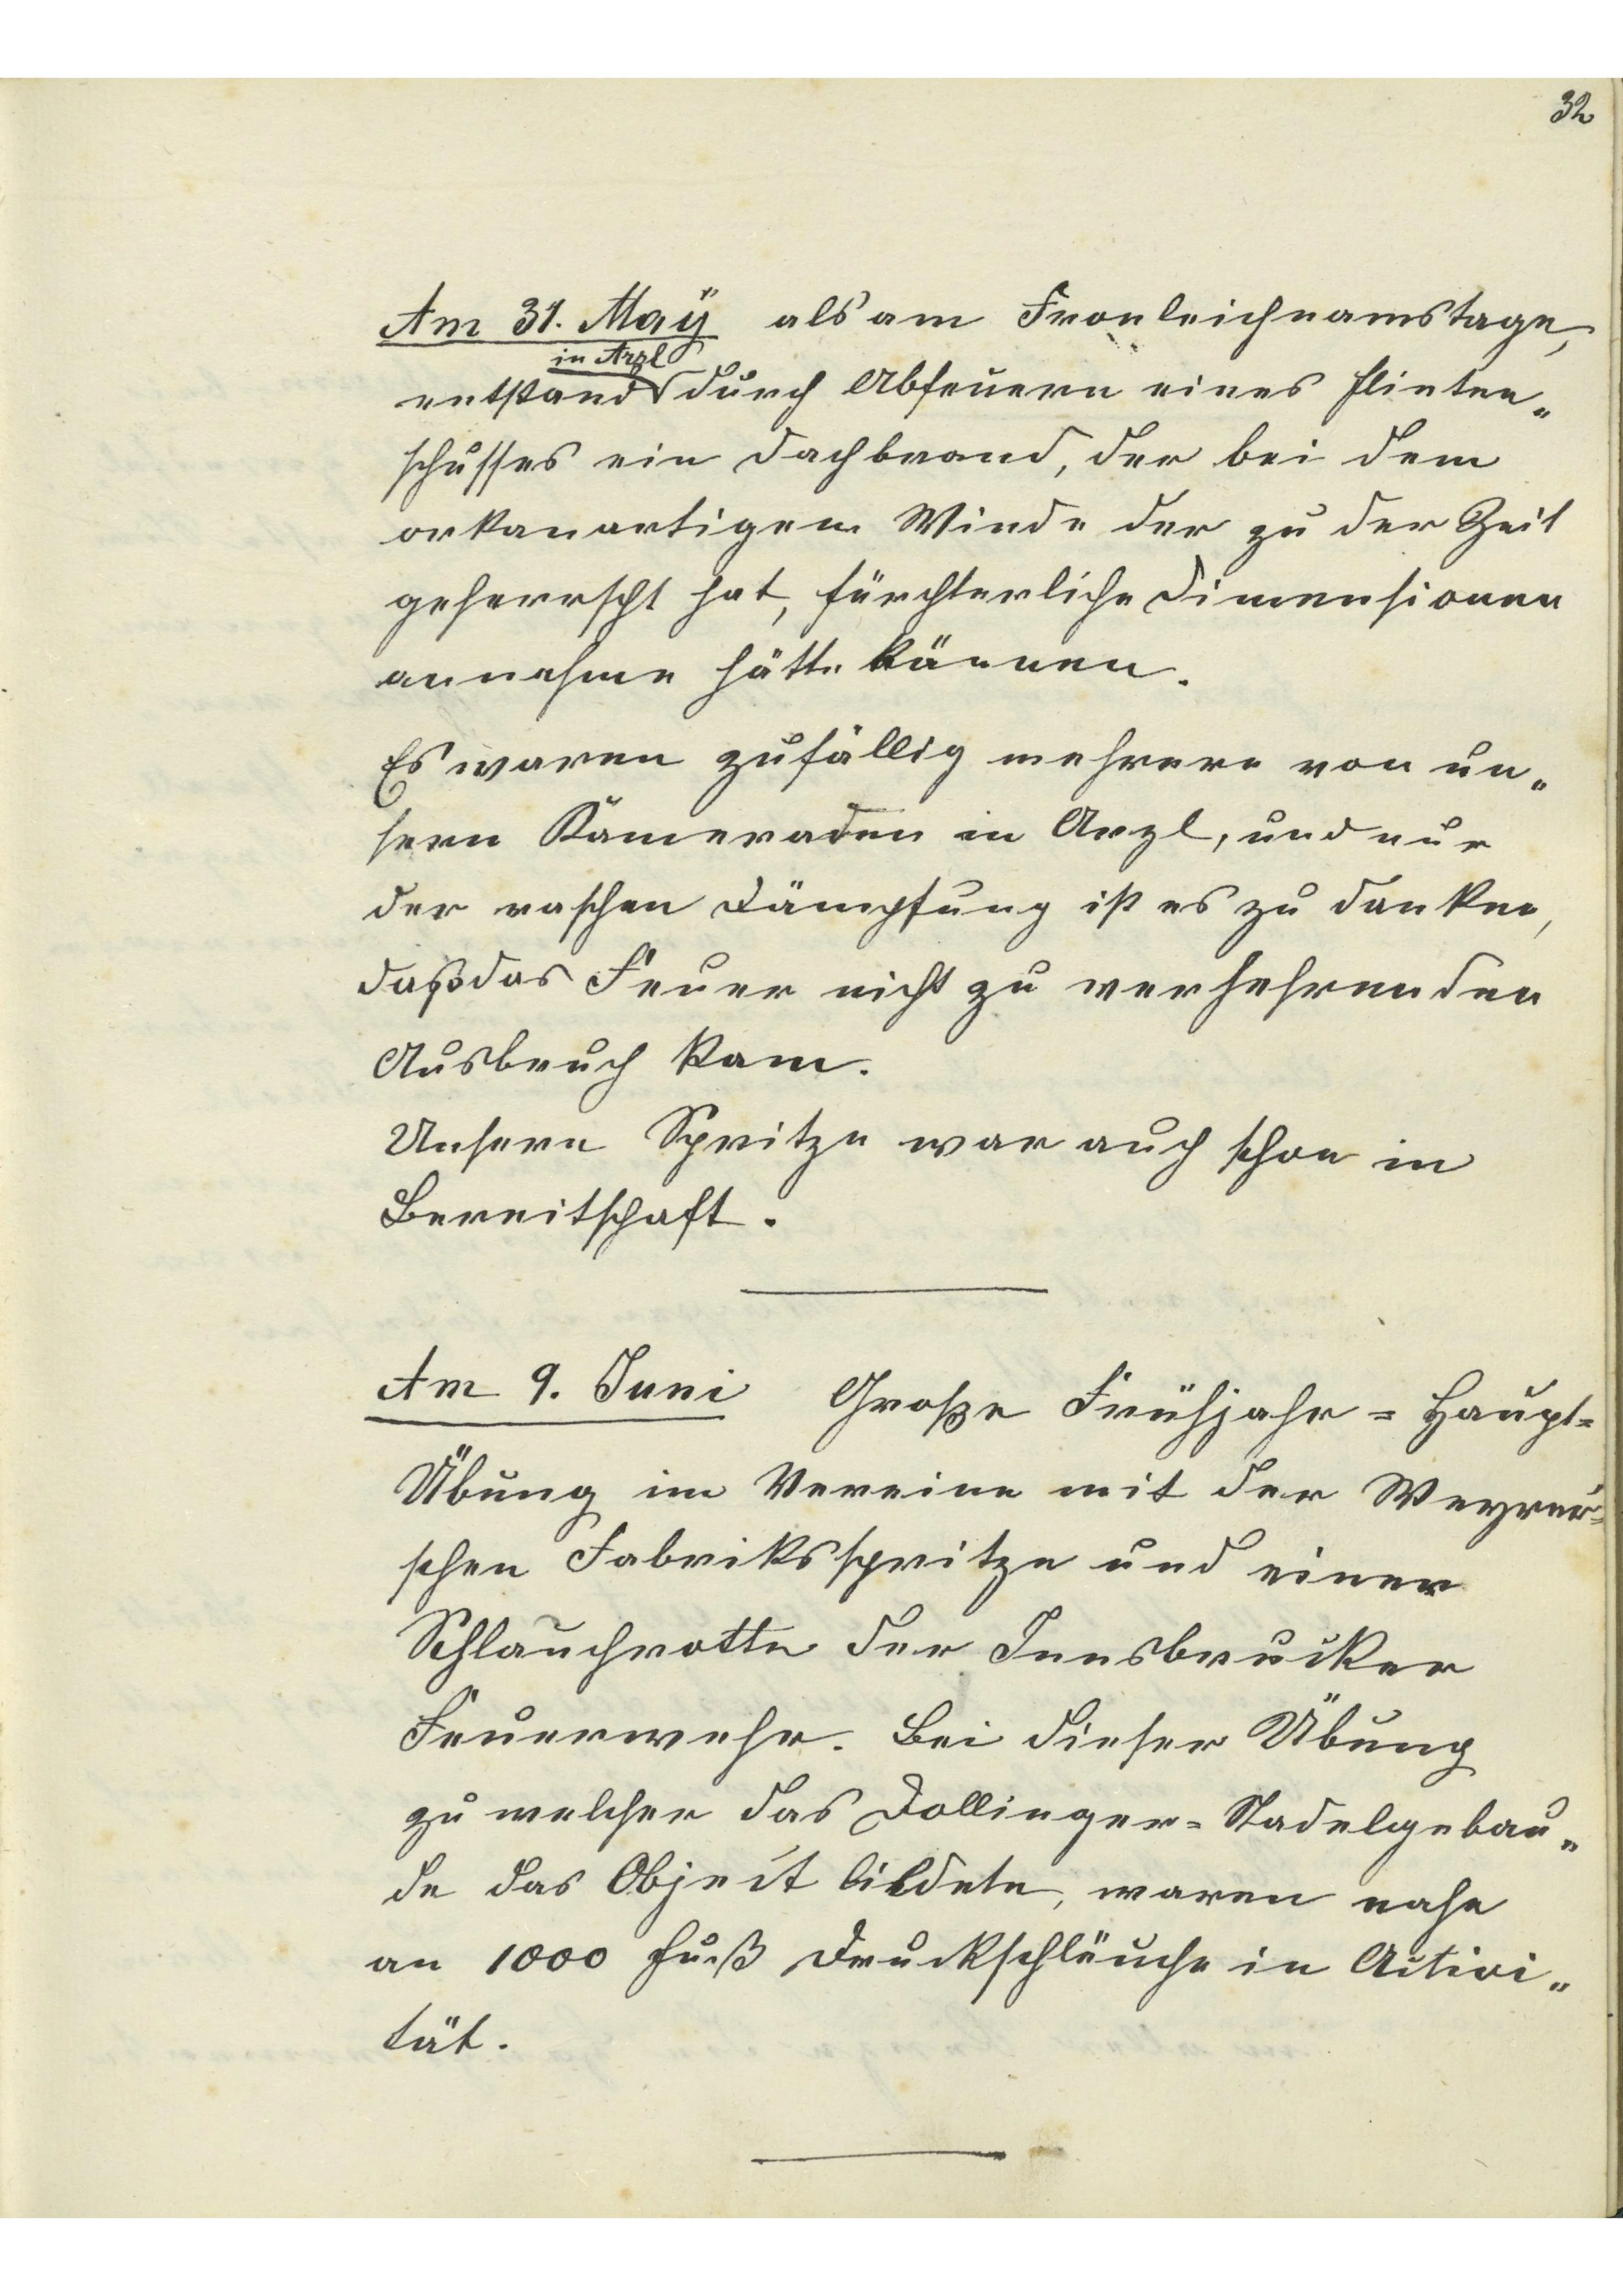 32
Am 31. Maÿ als am Fronleichnamstage,
in Arzl
entstand durch Abfeuern eines Flinten„
schusses ein Dachbrand, der bei dem
orkanartigen Winde der zu der Zeit
geherrscht hat, fürchterliche Dimensionen
annehme hätte können.
Es waren zufällig mehrere von un„
sern Kameraden in Arzl, und nur
der raschen Dämpfung ist es zu danken,
daß das Feuer nicht zu verhehrenden
Ausbruch kam.
Unsere Spritze war auch schon in
Bereitschaft.
Am 9. Juni Große Frühjahr=Haupt=
Übung im Vereine mit der Weyrer=
schen Fabriksspritze und einer
Schlauchrotte der Innsbrucker
Feuerwehr. Bei dieser Übung
zu welcher das Dollinger=Stadelgebau„
de das Object bildete, waren nahe
an 1000 Fuß Druckschläuche in Activi„
tät.